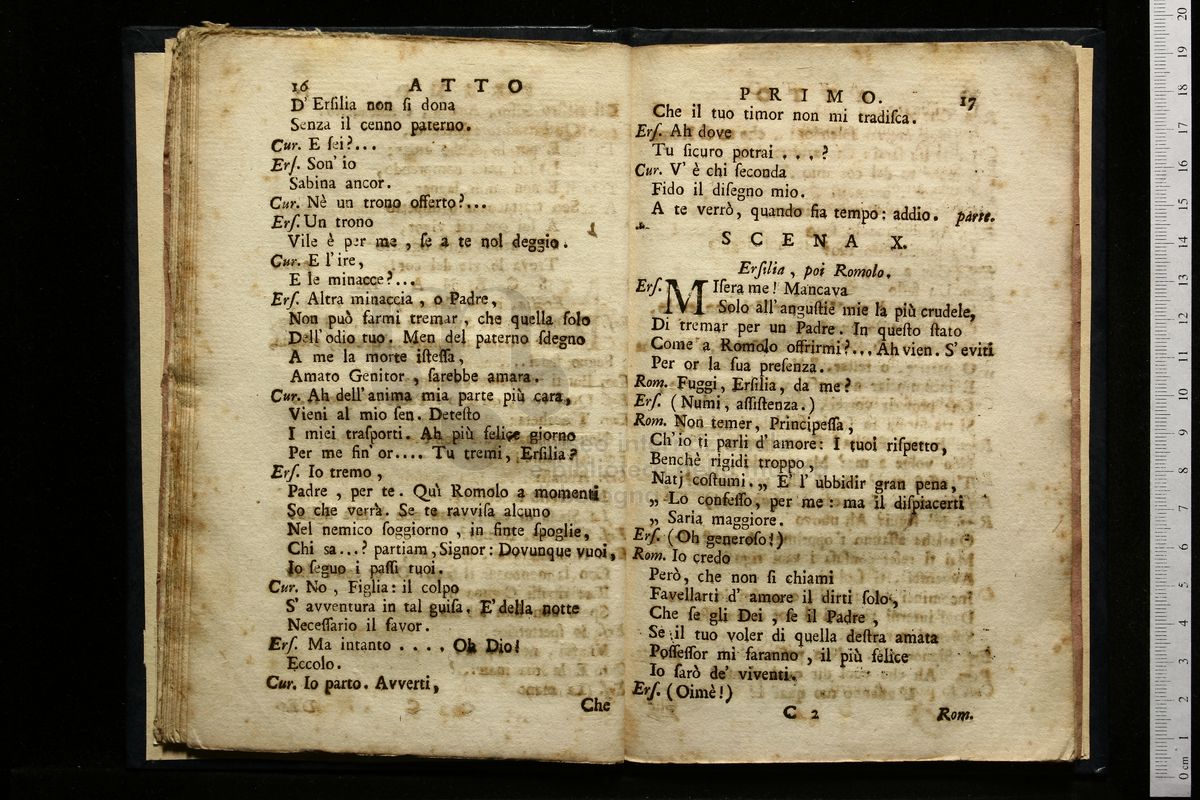 16 ATTO
D' Erſilia non ſi dona
Senza il cenno paterno.
Cur. E ſei?...
Erſ. Son' io
Sabina ancor.
Cur. Nè un trono offerto?...
Erſ. Un trono
Vile è per me , ſe a te nol deggio.
Cur. E l'ire,
E le minacce?...
Erſ. Altra minaccia , o Padre,
Non può farmi tremar , che quella ſolo
Dell'odio tuo. Men del paterno ſdegno
A me la morte iſteſſa,
Amato Genitor , ſarebbe amara.
Cur. Ah dell'anima mia parte più cara,
Vieni al mio ſen. Deteſto
I miei traſporti. Ah più felice giorno
Per me fin' or.... Tu tremi, Erſilia?
Erſ. Io tremo ,
Padre , per te. Quì Romolo a momenti
So che verrà. Se te ravviſa alcuno
Nel nemico ſoggiorno , in finte ſpoglie,
Chi sa...? partiam , Signor: Dovunque vuoi,
Io ſeguo i paſſi tuoi.
Cur. No , Figlia: il colpo
S' avventura in tal guiſa. E' della notte
Neceſſario il favor.
Erſ. Ma intanto . . . . Oh Dio!
Eccolo.
Cur. Io parto. Avverti,
Che
PRIMO. 17
Che il tuo timor non mi tradiſca.
Erſ. Ah dove
Tu ſicuro potrai . . . ?
Cur. V' è chi ſeconda
Fido il diſegno mio.
A te verrò, quando fia tempo: addio. parte.
SCENA X.
Erſilia , poi Romolo.
Erſ. MIſera me! Mancava
Solo all'anguſtie mie la più crudele,
Di tremar per un Padre. In queſto ſtato
Come a Romolo offrirmi?... Ah vien. S' eviti
Per or la ſua preſenza.
Rom. Fuggi, Erſilia, da me?
Erſ. (Numi, aſſiſtenza.)
Rom. Non temer, Principeſſa,
Ch'io ti parli d'amore: I tuoi riſpetto,
Benchè rigidi troppo,
Natj coſtumi. „ E' l' ubbidir gran pena,
„ Lo confeſſo, per me : ma il diſpiacerti
„ Saria maggiore.
Erſ. (Oh generoſo!)
Rom. Io credo
Però, che non ſi chiami
Favellarti d' amore il dirti ſolo,
Che ſe gli Dei , ſe il Padre ,
Se il tuo voler di quella deſtra amata
Poſſeſſor mi faranno , il più felice
Io ſarò de' viventi.
Erſ. (Oimè!)
C 2 Rom.